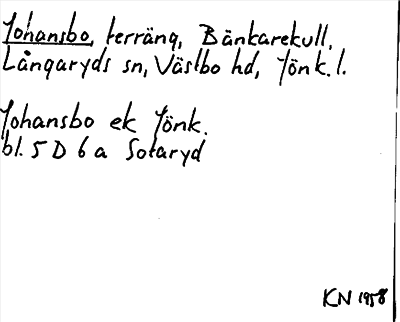 Johansbo, terräng, Bänkarekull,
Långaryds sn, Västbo hd, Jönk. l.
Johansbo ek Jönk.
bl. 5 D 6 a Sotaryd
KN 1958